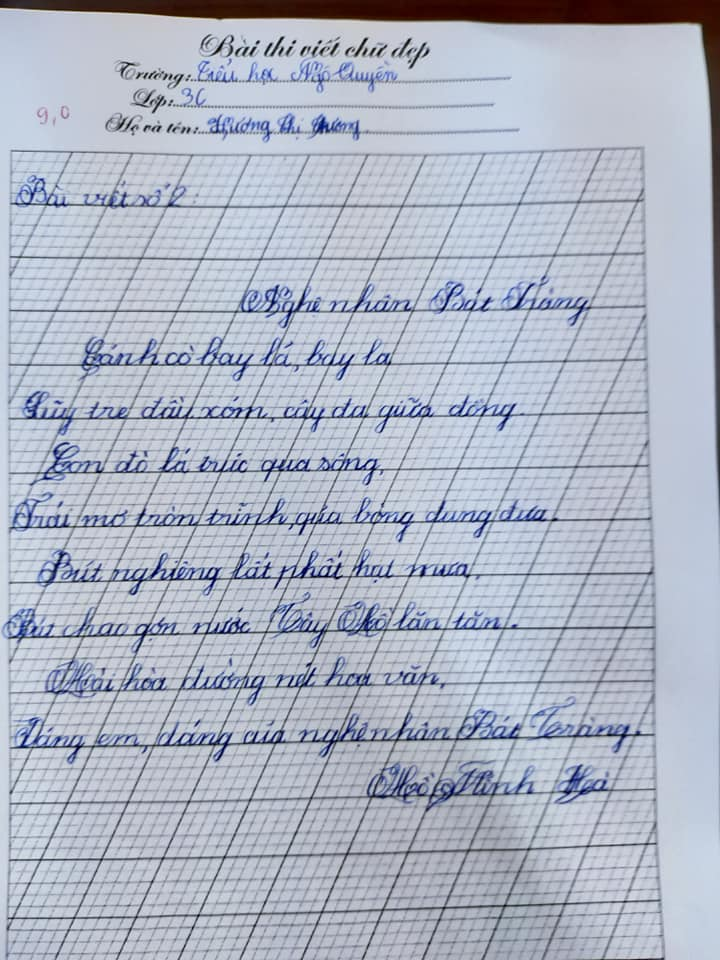 Bài thi viết chữ đẹp
Trường: Tiểu học Ngô Quyền
Lớp: 3C
9,0
Họ và tên: Hương Thị Hương
Bài viết số 2
Nghệ nhân Bát Tràng
Cánh cò bay lả, bay la
Lũy tre đầu xóm, cây đa giữa đồng.
Con đò lá trúc qua sông,
Trái mơ tròn trĩnh, quả bòng đung đưa.
Bút nghiêng lất phất hạt mưa,
Bút chao gợn nước Tây Hồ lăn tăn.
Hài hòa đường nét hoa văn,
Dáng em, dáng của nghệ nhân Bát Tràng.
Hồ Minh Hà